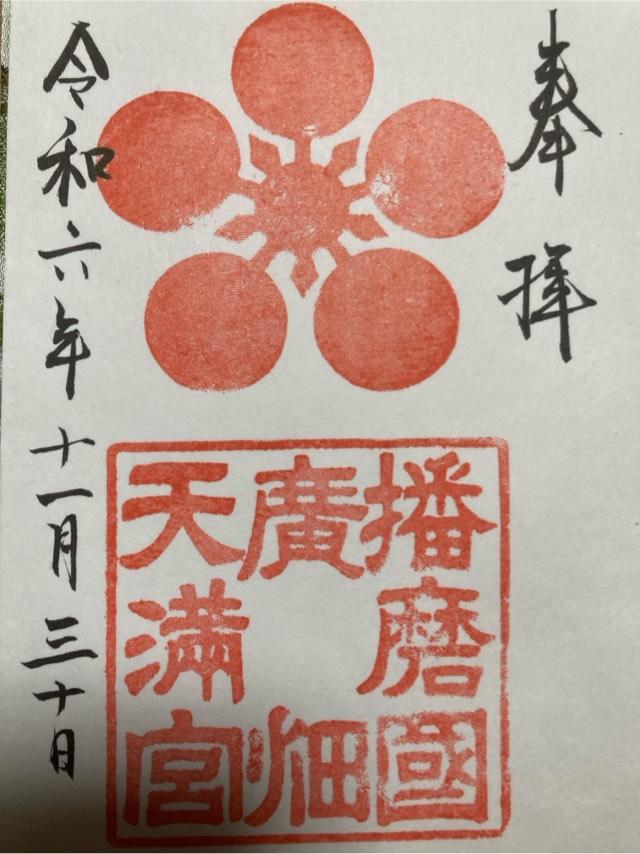 奉拝
播磨國
廣畑
天満宮
令和六年十一月三十日